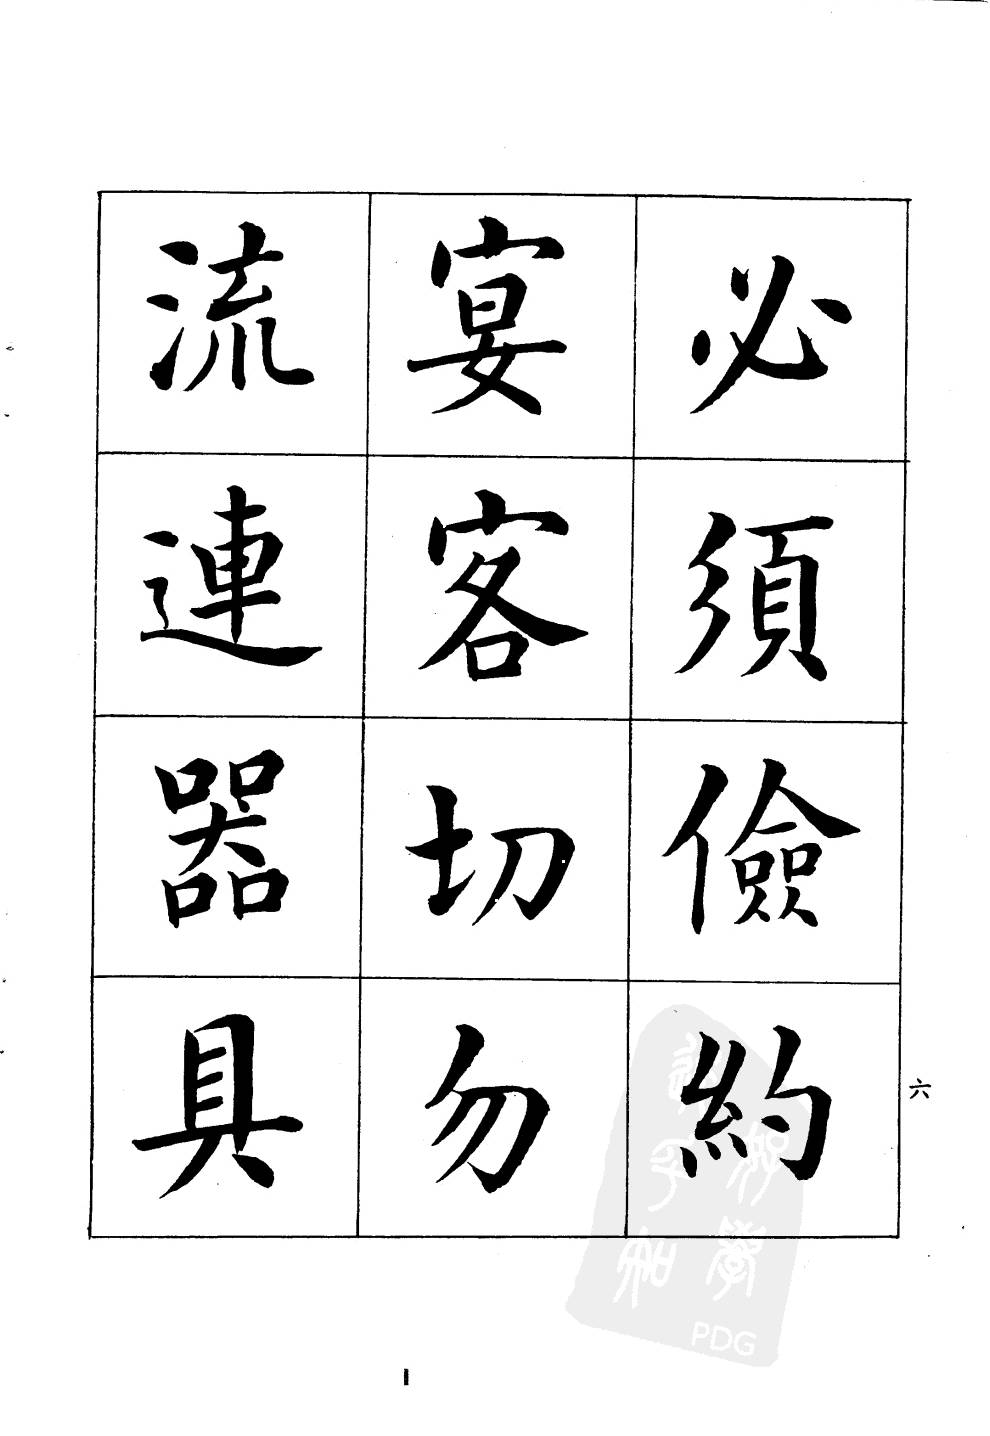 必須儉約
宴客切勿
流連器具
六
PDG